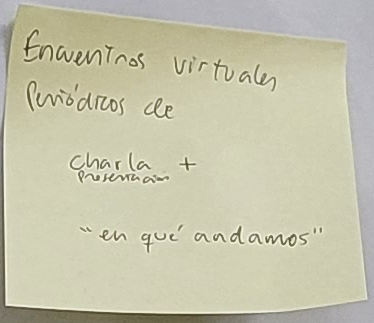 Encuentros virtuales
Periódicos de
charla +
presentación
"en qué andamos"